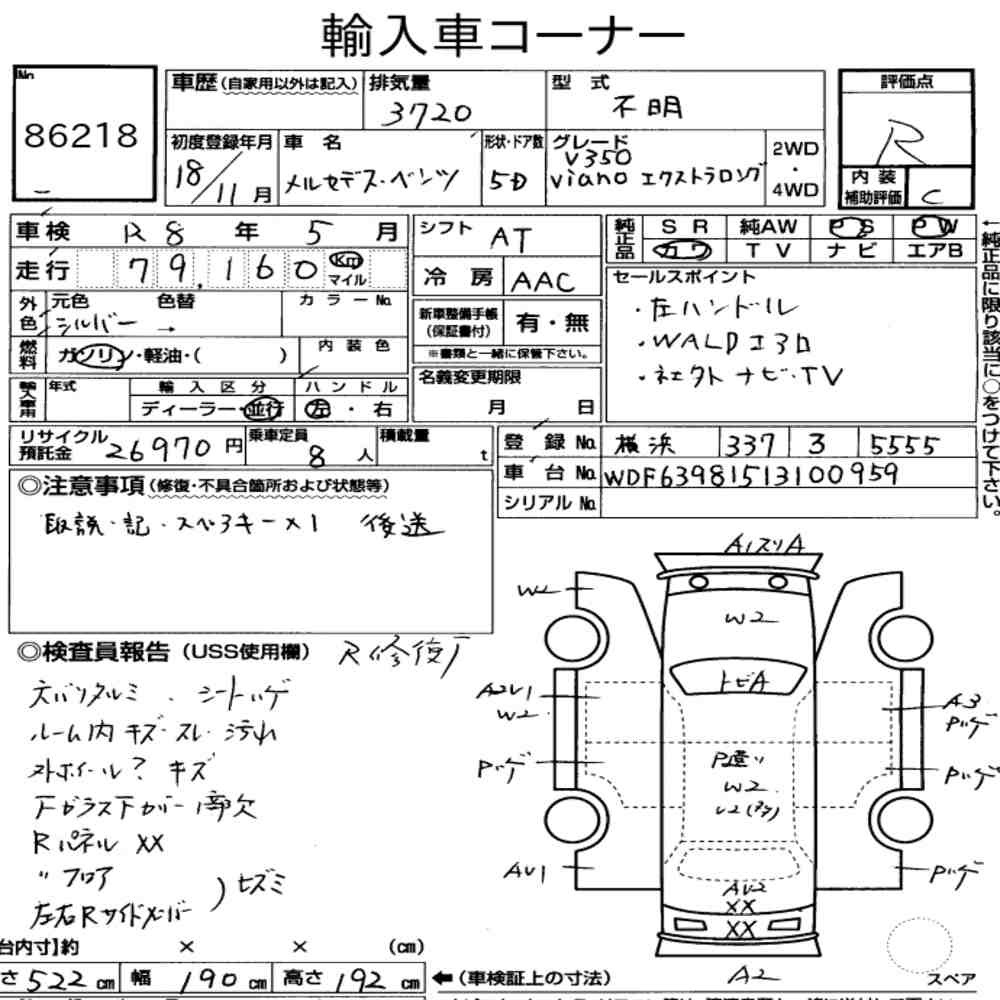 輸入車コーナー
No
86218
車歴(自家用以外は記入)
排気量
3720
型 式
不明
評価点
R
初度登録年月
18/11月
車 名
メルセデス・ベンツ
形状・ドア数
5D
グレード
V350
viano エクストラロング
2WD
・
4WD
内 装
補助評価
C
車検 R8 年 5 月
シフト AT
純正品
SR 純AW PS PW
カワ TV ナビ エアB
走行 79,160 Km
マイル
冷 房 AAC
セールスポイント
・左ハンドル
・WALDエアロ
・社外ナビ・TV
外色
元色 色替 カラーNo.
シルバー →
新車整備手帳
(保証書付) 有・無
※書類と一緒に保管下さい。
燃料
ガソリン・軽油・( )
内 装 色
輸入車用
年式
輸 入 区 分
ハ ン ド ル
ディーラー・並行
左 ・ 右
名義変更期限
月 日
←純正品に限り該当に○をつけて下さい。
リサイクル
預託金 26970 円
乗車定員
8 人
積載量
t
登 録 No. 横浜 337 3 5555
車 台 No. WDF63981513100959
シリアル No.
◎注意事項(修復・不具合箇所および状態等)
取説・記・スペアキー×1 後送
◎検査員報告(USS使用欄) R修復
シートハゲ
ルーム内 キズ・スレ・汚れ
外ホイール? キズ
下ガラス下カバー1部欠
Rパネル XX
〃 フロア
左右Rサイドメンバー
A1スリA
W2
W2
トビA
A2U1
W2
A3
Pハゲ
Pハゲ
P塗り
W2
Pハゲ
AU1
Pハゲ
AU2
XX
XX
A2
スペア
台内寸】約 × × (cm)
さ 522 cm 幅 190 cm 高さ 192 cm
←(車検証上の寸法)